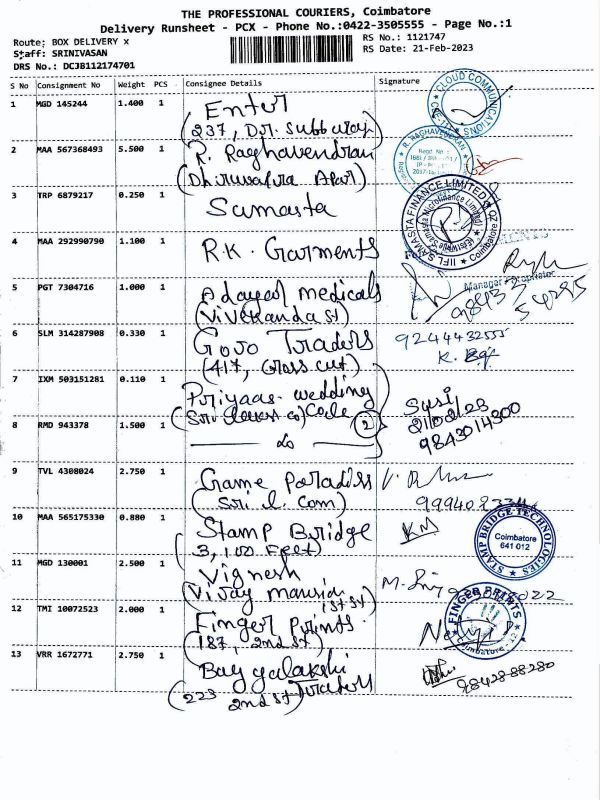 THE PROFESSIONAL COURIERS, Coimbatore
Delivery Runsheet - PCX - Phone No.:0422-3505555 - Page No.:1
Route; BOX DELIVERY x
RS No.: 1121747
Staff: SRINIVASAN
RS Date: 21-Feb-2023
DRS No.: DCJB112174701
S No Consignment No Weight PCS Consignee Details Signature
1 MGD 145244 1.400 1 Enter
(237, Dr. Subbaray)
CLOUD COMMUNICATIONS
2 MAA 567368493 5.500 1 R. Raghavendran
(Dhiruvapra Apar)
R. RAGHAVENDRAN
3 TRP 6879217 0.250 1 Samasta
IIFL SAMASTA FINANCE LIMITED
(Formerly Samasta Microfinance Limited)
Coimbatore
4 MAA 292990790 1.100 1 R.K. Garments
Manager Proprietor
5 PGT 7304716 1.000 1 Adayar medicals
(Vivekanda st)
6 SLM 314287908 0.330 1 Govo Traders
(417, Cross cut)
9244432555
7 IXM 503151281 0.110 1 Priyaas wedding
Susi
21/02/23
9843014300
8 RMD 943378 1.500 1 do 2
9 TVL 4308024 2.750 1 Game Paradiss
(Sri l. Com)
10 MAA 565175330 0.880 1 Stamp Bridge
3, 100 Feet)
KM
STAMP BRIDGE TECHNOLOGIES
Coimbatore
641 012
11 MGD 130001 2.500 1 Vignesh
(Vijay mansion
1st st)
12 TMI 10072523 2.000 1 Finger Prints
(187, 2nd st)
FINGER PRINTS
Coimbatore - 12
13 VRR 1672771 2.750 1 Bagyalakshi
Traders
(223
2nd st)
98428-88280